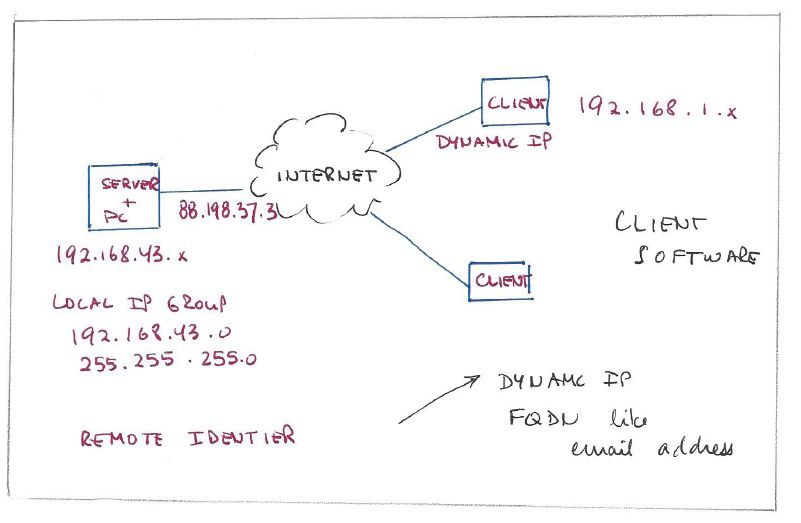 CLIENT
192.168.1.x
DYNAMIC IP
INTERNET
SERVER
+
PC
88.198.37.3
192.168.43.x
CLIENT
SOFTWARE
CLIENT
LOCAL IP GROUP
192.168.43.0
255.255.255.0
DYNAMC IP
FQDN like
email address
REMOTE IDENTIER